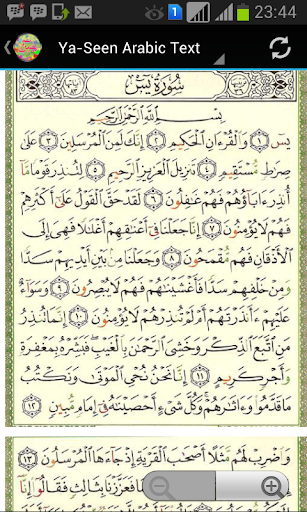 23:44
Ya-Seen Arabic Text
سُورَةُ يسٓ
بِسْمِ ٱللَّهِ ٱلرَّحْمَٰنِ ٱلرَّحِيمِ
يسٓ ١ وَٱلْقُرْءَانِ ٱلْحَكِيمِ ٢ إِنَّكَ لَمِنَ ٱلْمُرْسَلِينَ ٣ عَلَىٰ
صِرَٰطٍ مُّسْتَقِيمٍ ٤ تَنزِيلَ ٱلْعَزِيزِ ٱلرَّحِيمِ ٥ لِتُنذِرَ قَوْمًا مَّآ
أُنذِرَ ءَابَآؤُهُمْ فَهُمْ غَٰفِلُونَ ٦ لَقَدْ حَقَّ ٱلْقَوْلُ عَلَىٰٓ أَكْثَرِهِمْ
فَهُمْ لَا يُؤْمِنُونَ ٧ إِنَّا جَعَلْنَا فِىٓ أَعْنَٰقِهِمْ أَغْلَٰلًا فَهِىَ إِلَى
ٱلْأَذْقَانِ فَهُم مُّقْمَحُونَ ٨ وَجَعَلْنَا مِنۢ بَيْنِ أَيْدِيهِمْ سَدًّا
وَمِنْ خَلْفِهِمْ سَدًّا فَأَغْشَيْنَٰهُمْ فَهُمْ لَا يُبْصِرُونَ ٩ وَسَوَآءٌ
عَلَيْهِمْ ءَأَنذَرْتَهُمْ أَمْ لَمْ تُنذِرْهُمْ لَا يُؤْمِنُونَ ١٠ إِنَّمَا تُنذِرُ
مَنِ ٱتَّبَعَ ٱلذِّكْرَ وَخَشِىَ ٱلرَّحْمَٰنَ بِٱلْغَيْبِ فَبَشِّرْهُ بِمَغْفِرَةٍ
وَأَجْرٍ كَرِيمٍ ١١ إِنَّا نَحْنُ نُحْىِ ٱلْمَوْتَىٰ وَنَكْتُبُ
مَا قَدَّمُوا۟ وَءَاثَٰرَهُمْ وَكُلَّ شَىْءٍ أَحْصَيْنَٰهُ فِىٓ إِمَامٍ مُّبِينٍ ١٢
وَٱضْرِبْ لَهُم مَّثَلًا أَصْحَٰبَ ٱلْقَرْيَةِ إِذْ جَآءَهَا ٱلْمُرْسَلُونَ ١٣
فَعَزَّزْنَا بِثَالِثٍ فَقَالُوٓا۟ إِنَّآ